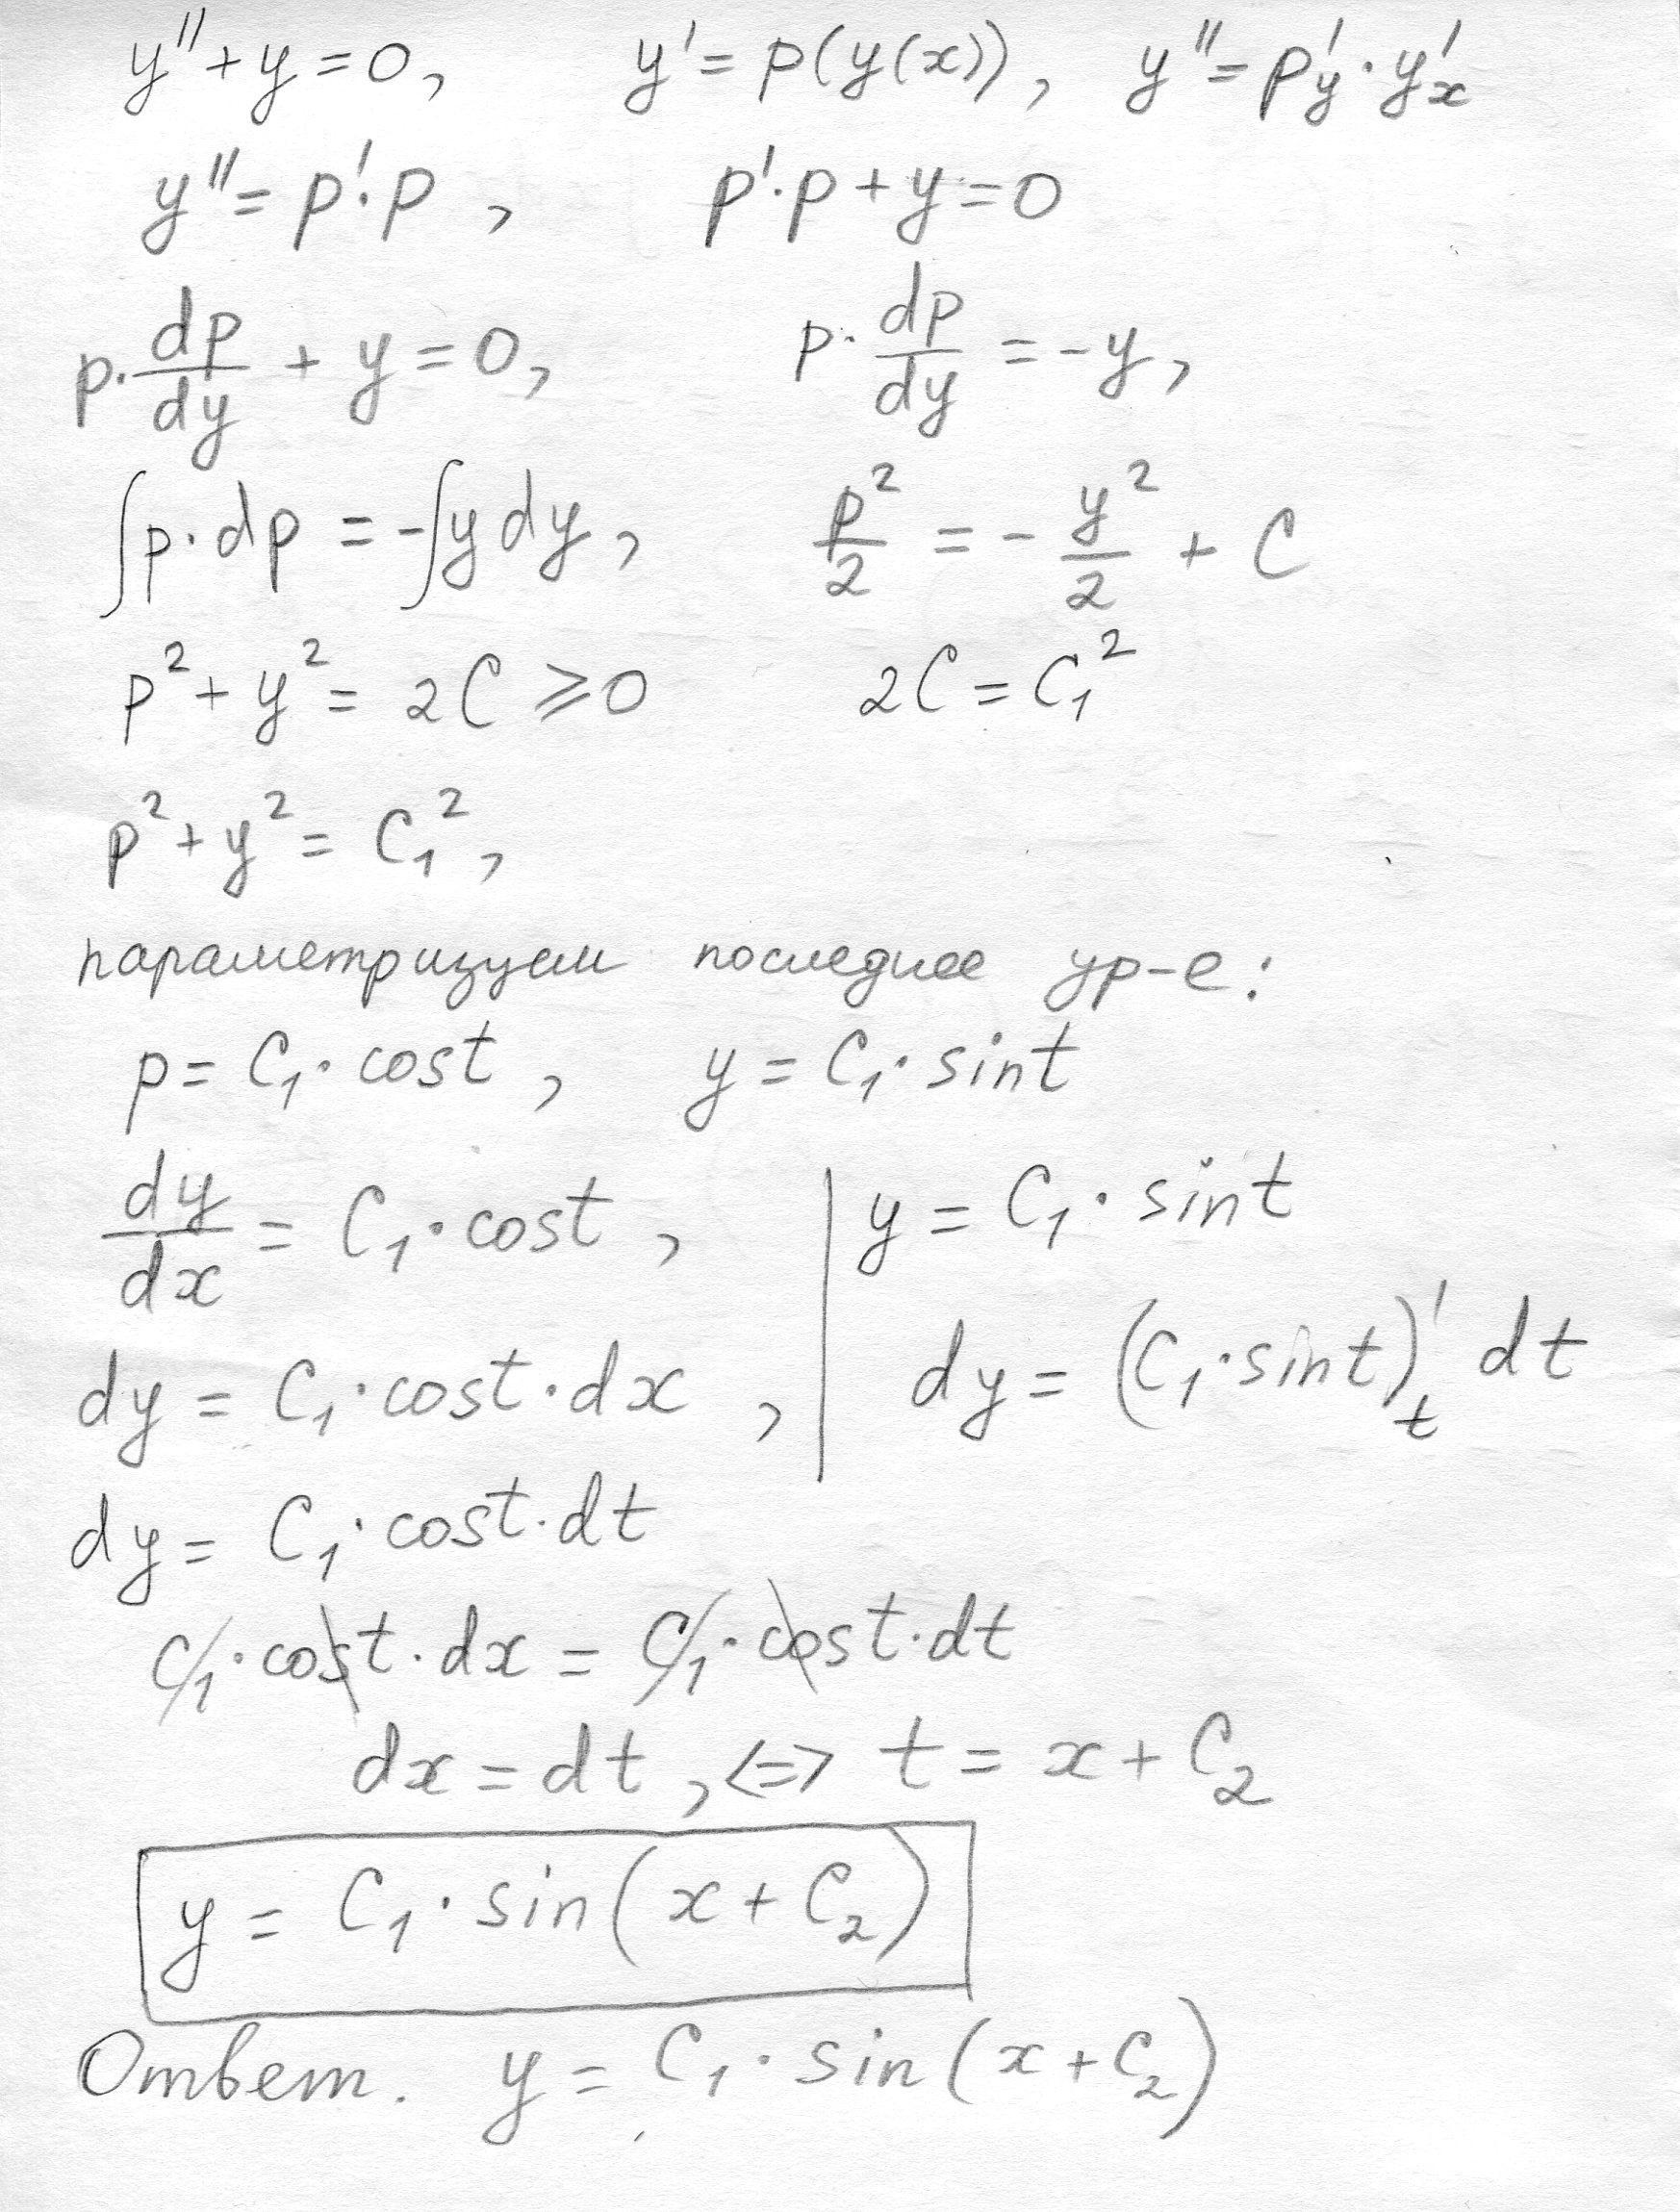 y''+y=0, y'=p(y(x)), y''=p'_y·y'_x
y''=p'·p, p'·p+y=0
p·dp/dy+y=0, p·dp/dy=-y,
∫p·dp=-∫ydy, p²/2=-y²/2+C
p²+y²=2C⩾0 2C=C₁²
p²+y²=C₁²,
параметризуем последнее ур-е:
p=C₁·cost, y=C₁·sint
dy/dx=C₁·cost, | y=C₁·sint
dy=C₁·cost·dx, | dy=(C₁·sint)'_t dt
dy=C₁·cost·dt
C₁·cost·dx=C₁·cost·dt
dx=dt, <=> t=x+C₂
y=C₁·sin(x+C₂)
Ответ. y=C₁·sin(x+C₂)